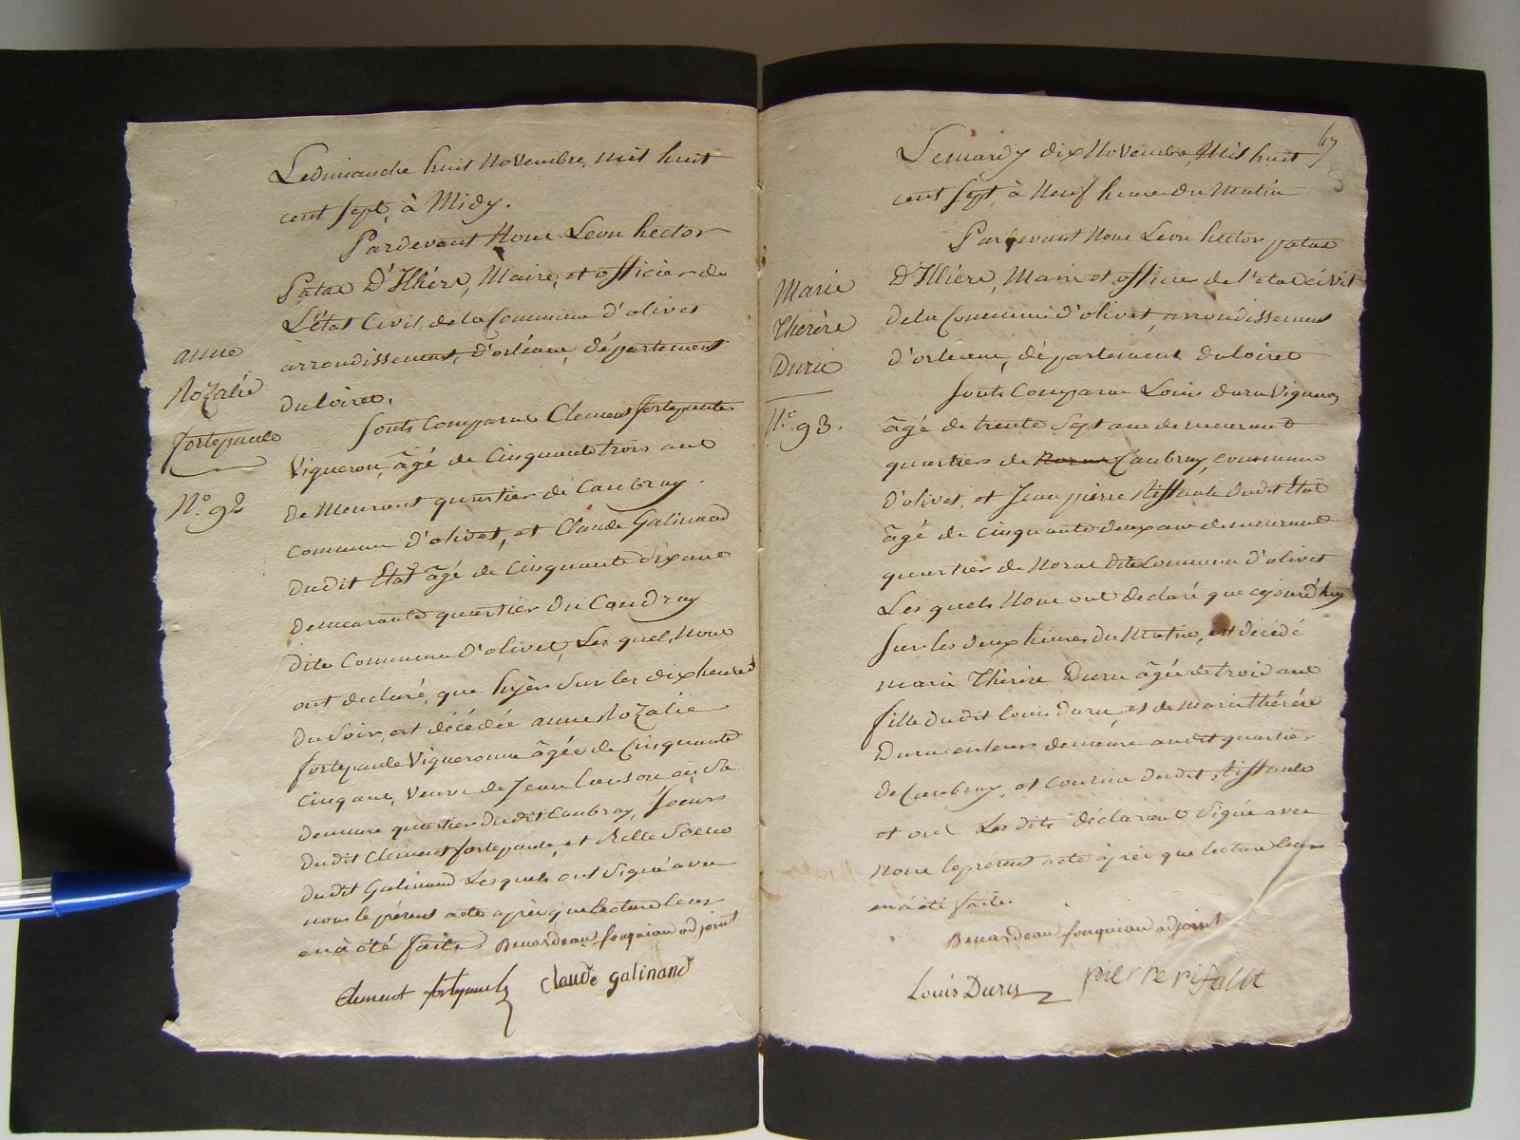 Le dimanche huit Novembre, mil huit
cent sept, à Midy.
Pardevant Nous Leon hector
Patas D'Illiere, Maire, et officier de
L'état Civil de la Commune d'olivet
arrondissement, d'orléans, département
du loiret,
anne
Rozalie
fortepaule
N.° 92
sonts Comparus Clement fortepaule
Vigneron, âgé de Cinquante trois ans
de Meurant quartier de Caubray.
commune d'olivet, et Claude Galinand
dudit Etat âgé de Cinquante dix ans
demeurant quartier du Caudray
dite Commune d'olivet, Les quel, Nous
ont declaré, que hyèr sur les dix heures
du Soir, est décédée anne Rozalie
fortepaule Vigneronne âgée de Cinquante
cinq ans, Veuve de Jean en sa
demeure quartier dudit Caubray, soeur
dudit Clement fortepaule, et Belle Soeur
dudit Galinand Lesquels ont Signé avec
nous le présent acte après que lecture leur
en à été faite Benardeau fouqueau adjoint
Clement fortepaule
Claude galinand
67
Le mardy dix Novembre Mil huit
cent sept, à Neuf heure du Matin
Pardevant Nous Leon hector patas
D'Illiere, Maire et officier de l'etat Civil
de la Commune d'olivet, arrondissement
d'orleans, département du loiret
Marie
Therère
Duru
N.° 93.
sonts Comparus Louis duru Vigneron
âgé de trente Sept ans demeurant
quartier de Caubray, commune
d'olivet, et Jean pierre Riffault dudit Etat
âgé de cinquante deux ans demeurant
quartier de dite Commune d'olivet
Les quels Nous ont declaré que ajourd'huy
sur les deux heures du Matin, est décédé
marie Thérère Duru âgée de trois ans
fille dudit louis duru, et de marie thérère
Duru en leur demeure audit quartier
de Caubray, et Cousine dudit Riffault
et ont Les dits déclarant Signé avec
Nous le présent acte après que lecture leur
en à été faite.
Benardeau fouqueau adjoint
Louis Duru
pierre rifault